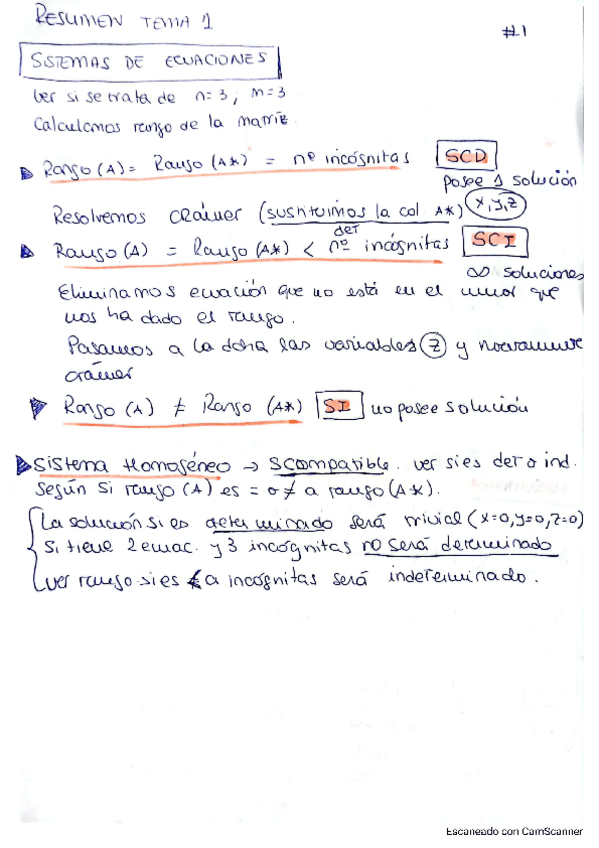 RESUMEN TEMA 1
#1
SISTEMAS DE ECUACIONES
Ver si se trata de n=3, m=3
Calculamos rango de la matriz.
Rango (A) = Rango (A*) = nº incógnitas SCD
posee 1 solución
Resolvemos cramer (sustituimos la col A*) x,y,z
det
Rango (A) = Rango (A*) < nº incógnitas SCI
∞ soluciones
Eliminamos ecuación que no está en el menor que
nos ha dado el rango.
Pasamos a la dcha las variables z y nuevamente
cramer
Rango (A) ≠ Rango (A*) SI no posee solución
Sistema Homogéneo → S compatible. ver si es det o ind.
Según si rango (A) es = o ≠ a rango (A*).
La solución si es determinado será trivial (x=0, y=0, z=0)
Si tiene 2 ecuac. y 3 incógnitas no será determinado
Ver rango si es < a incógnitas será indeterminado.
Escaneado con CamScanner